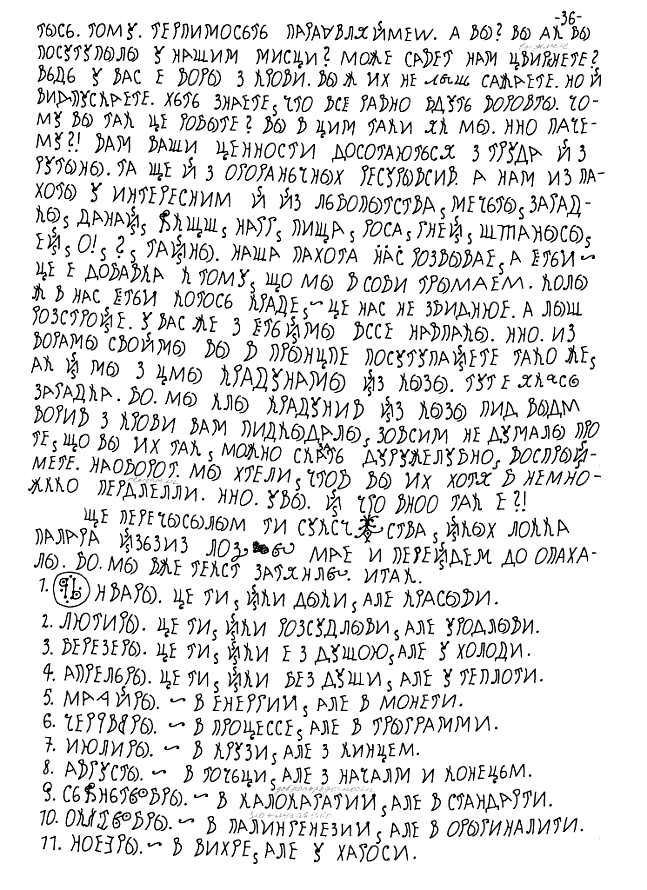 -36-
ТЫСЬ. ТОМУ. ТЕРПИМОСЬТЬ ПАРАѴВЛЯЙМЕШ. А ВЫ? ВЫ АК БЫ
ПОСУТУПЫЛЫ У НАШИМ МИСЦИ? МОЖЕ САДЕТ НАМ ЦВИРКЕТЕ?
ВЬДЬ У ВАС Е ВОРЫ З КРОВИ. ВЫ Ж ИХ НЕ ЛЫШ САЖАЕТЕ. НО Й
ВИДПУСКАЕТЕ. ХОТЬ ЗНАЕТЕ, ЧТО ВСЕ РАВНО БДУТЬ ВОРОВТЫ. ЧО-
МУ ВЫ ТАК ЦЕ РОБЫТЕ? ВЫ В ЦИМ ТАКИ ЯК МЫ. ННО ПАЧЕ-
МУ?! ВАМ ВАШИ ЦЕННОСТИ ДОСОТАЮТЬСЯ З ТРУДА Й З
РУТЫНЫ. ТА ЩЕ Й З ОГОРАНЫЧНЫХ РЕСУРЫСИВ. А НАМ ИЗ ПА-
ХОТЫ У ИНТЕРЕСНИМ Й ЙЗ ЛЬБОПЫТСТВА, МЕЧЬТЫ, ЗАГАД-
КЫ, ДАНАЙ, НАГГ, ПИЩА, РОСА, ГНЕЙ, ШТАНЫСЫ,
ЕЙ, О!, ?, ТАЙНЫ. НАША ПАХОТА НАС РОЗВЫВАЕ, А ЕТЬИ ~
ЦЕ Е ДОБАВКА К ТОМУ, ЩО МЫ В СОБИ ТРЫМАЕМ. КОЛЫ
Ж В НАС ЕТЬИ КОТОСЬ КРАДЕ, ~ ЦЕ НАС НЕ ЗВИДНЮЕ. А ЛЫШ
РОЗСТРОЙЕ. У ВАС ЖЕ З ЕТЬЙМЫ ВССЕ НАВПАКЫ. ННО. ИЗ
ВОРАМЫ СВОЙМЫ ВЫ В ПРЫНЦПЕ ПОСУТУПАЙЕТЕ ТАКО ЖЕ,
АК Й МЫ З ЦМЫ КРАДУНАМЫ ЙЗ КЫЗЫ. ТУТ Е ЯКАСЬ
ЗАГАДКА. БО. МЫ КЛЫ КРАДУНИВ ЙЗ КЫЗЫ ПИД ВЫДМ
ВОРИВ З КРОВИ ВАМ ПИДКЫДАЛЫ, ЗОВСИМ НЕ ДУМАЛЫ ПРО
ТЕ, ЩО ВЫ ИХ ТАК, МОЖНО СКАТЬ ДУРУЖЕЛУБНО, ВОСПРЫЙ-
МЕТЕ. НАОБОРОТ. МЫ ХТЕЛИ, ЧТОБ ВЫ ИХ ХОТЯ В НЕМНО-
ЖККО ПЕРДЛЕЛЛИ. ННО. УВЫ. Й ЧТО ВНОО ТАК Е?!
ЩЕ ПЕРЕЧЫСОЛЫМ ТИ СУКСЧ СТВА, ЙКЫХ ЛОККА
ПАЛАРА ЙЗЬЗИЗ МАЕ И ПЕРЕЙДЕМ ДО ОПАХА-
ЛЫ. БО. МЫ ВЖЕ ТЕКСТ ЗАТЯНЛЫ. ИТАК.
1. ЯЬ НВАРЫ. ЦЕ ТИ, ЙКИ ДЫКИ, АЛЕ КРАСЫВИ.
2. ЛЮТИРЫ. ЦЕ ТИ, ЙКИ РОЗСУДЛЫВИ, АЛЕ УРОДЛЫВИ.
3. БЕРЕЗЕРЫ. ЦЕ ТИ, ЙКИ Е З ДУШОЮ, АЛЕ У ХОЛОДИ.
4. АПРЕЛЬРЫ. ЦЕ ТИ, ЙКИ БЕЗ ДУШИ, АЛЕ У ТЕПЛОТИ.
5. МАААЙРЫ. ~ В ЕНЕРГИИ, АЛЕ В МОНЕТИ.
6. ЧЕРЯВЯРЫ. ~ В ПРОЦЕССЕ, АЛЕ В ТРЫГРАММИ.
7. ИЮЛИРЫ. ~ В КРУЗИ, АЛЕ З КИНЦЕМ.
8. АВГУСТЫ. ~ В ТОЧЬЦИ, АЛЕ З НАЧАЛМ И КОНЕЦЬМ.
9. ~ В КАЛОКАГАТИИ, АЛЕ В СТАНДАРТИ.
10. ~ В ПАЛИНГЕНЕЗИИ, АЛЕ В ОРЫГИНАЛИТИ.
11. НОЕЗРЫ. ~ В ВИХРЕ, АЛЕ У ХАГОСИ.